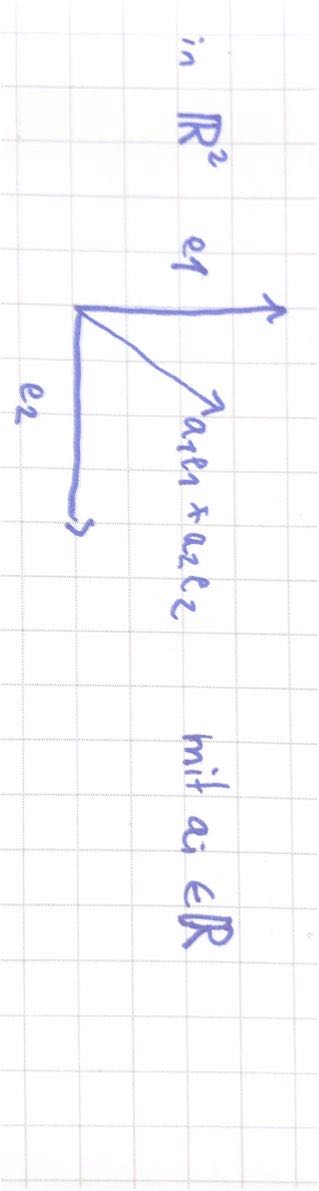 in ℝ² e1 a₁e₁ + a₂e₂ mit aᵢ ∈ ℝ
e2